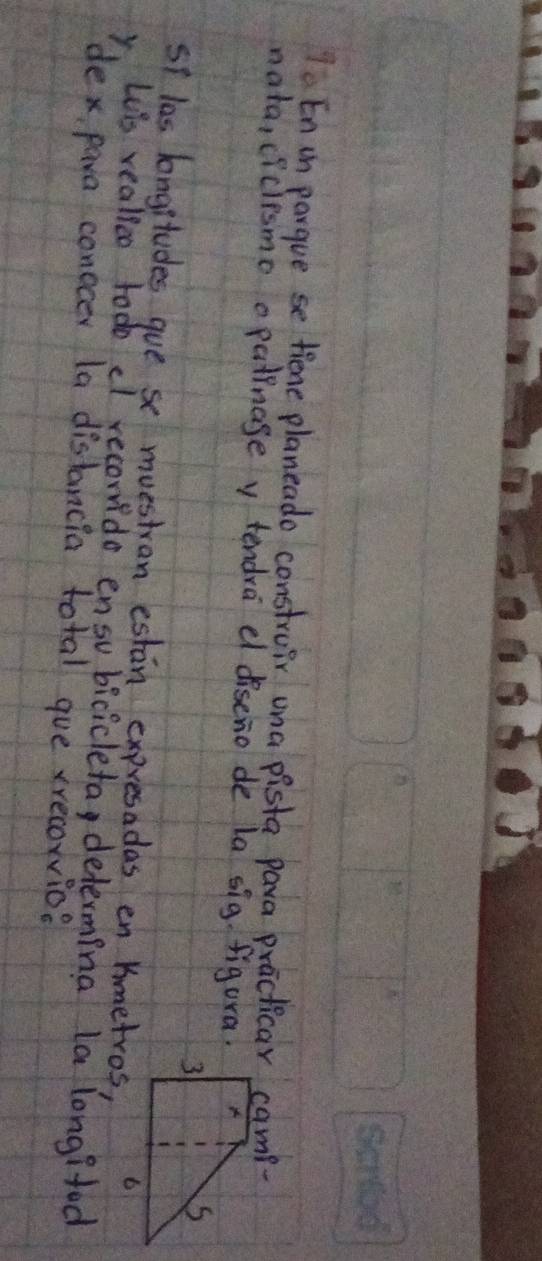 7. En un parque se tiene planeado construir una pista para practicar cami-
nata, ciclismo o patinage y tendrá el diseño de la sig. figura.
x
3
5
6
si las longitudes que se muestran están expresadas en Kmetros,
y Luis realizo todo el recorrido en su bicicleta, determina la longitud
de x, para conocer la distancia total que rrecorrio.
Scribe